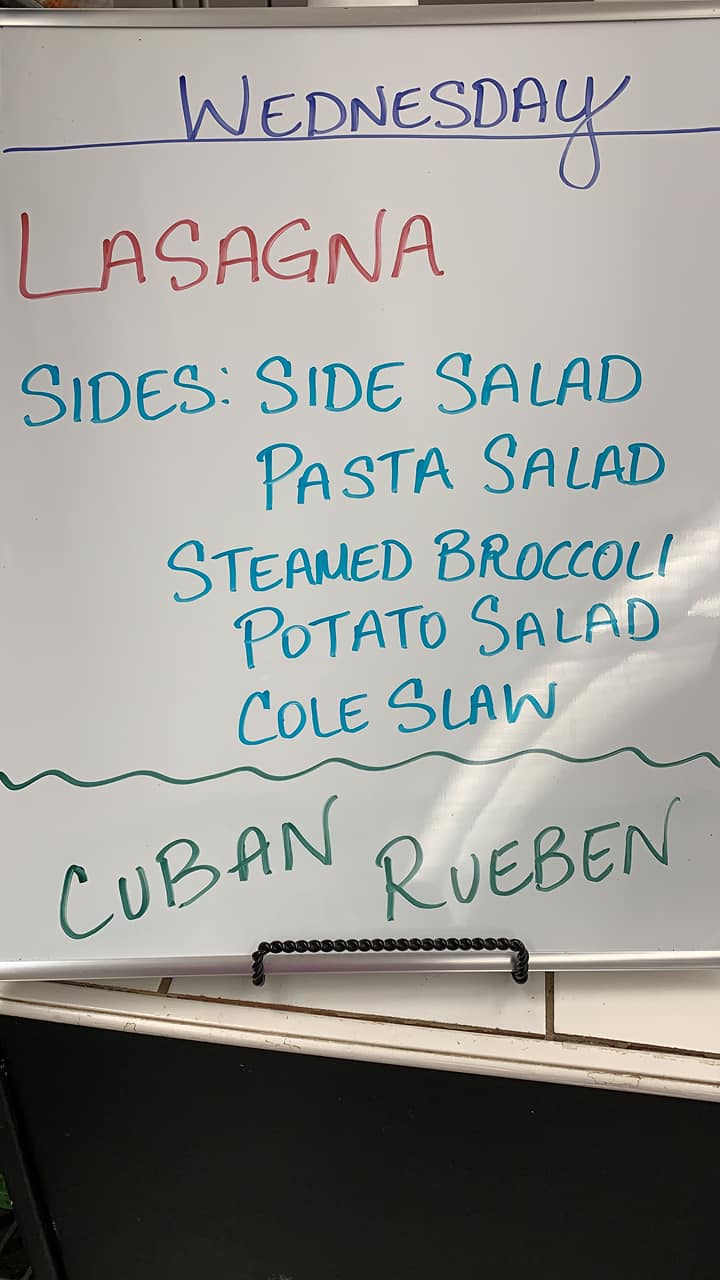 WEDNESDAY
LASAGNA
SIDES: SIDE SALAD
PASTA SALAD
STEAMED BROCCOLI
POTATO SALAD
COLE SLAW
CUBAN RUEBEN